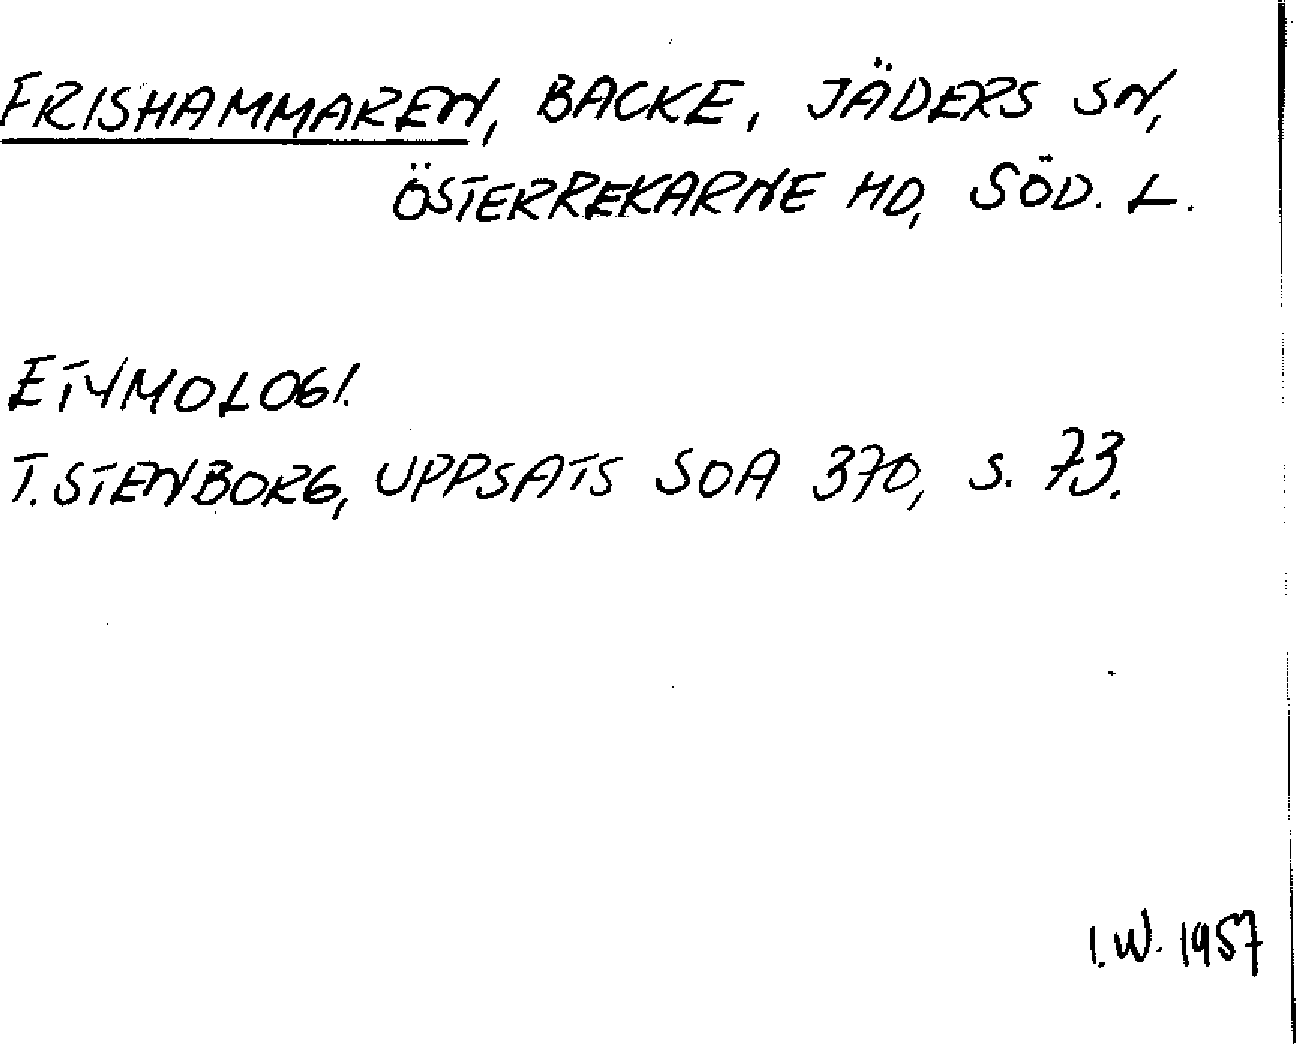 FRISHAMMAREN, BACKE, JÄDERS SN,
ÖSTERREKARNE HD, SÖD. L.
ETYMOLOGI.
T. STENBORG, UPPSATS SOA 370, S. 73.
I.W. 1957